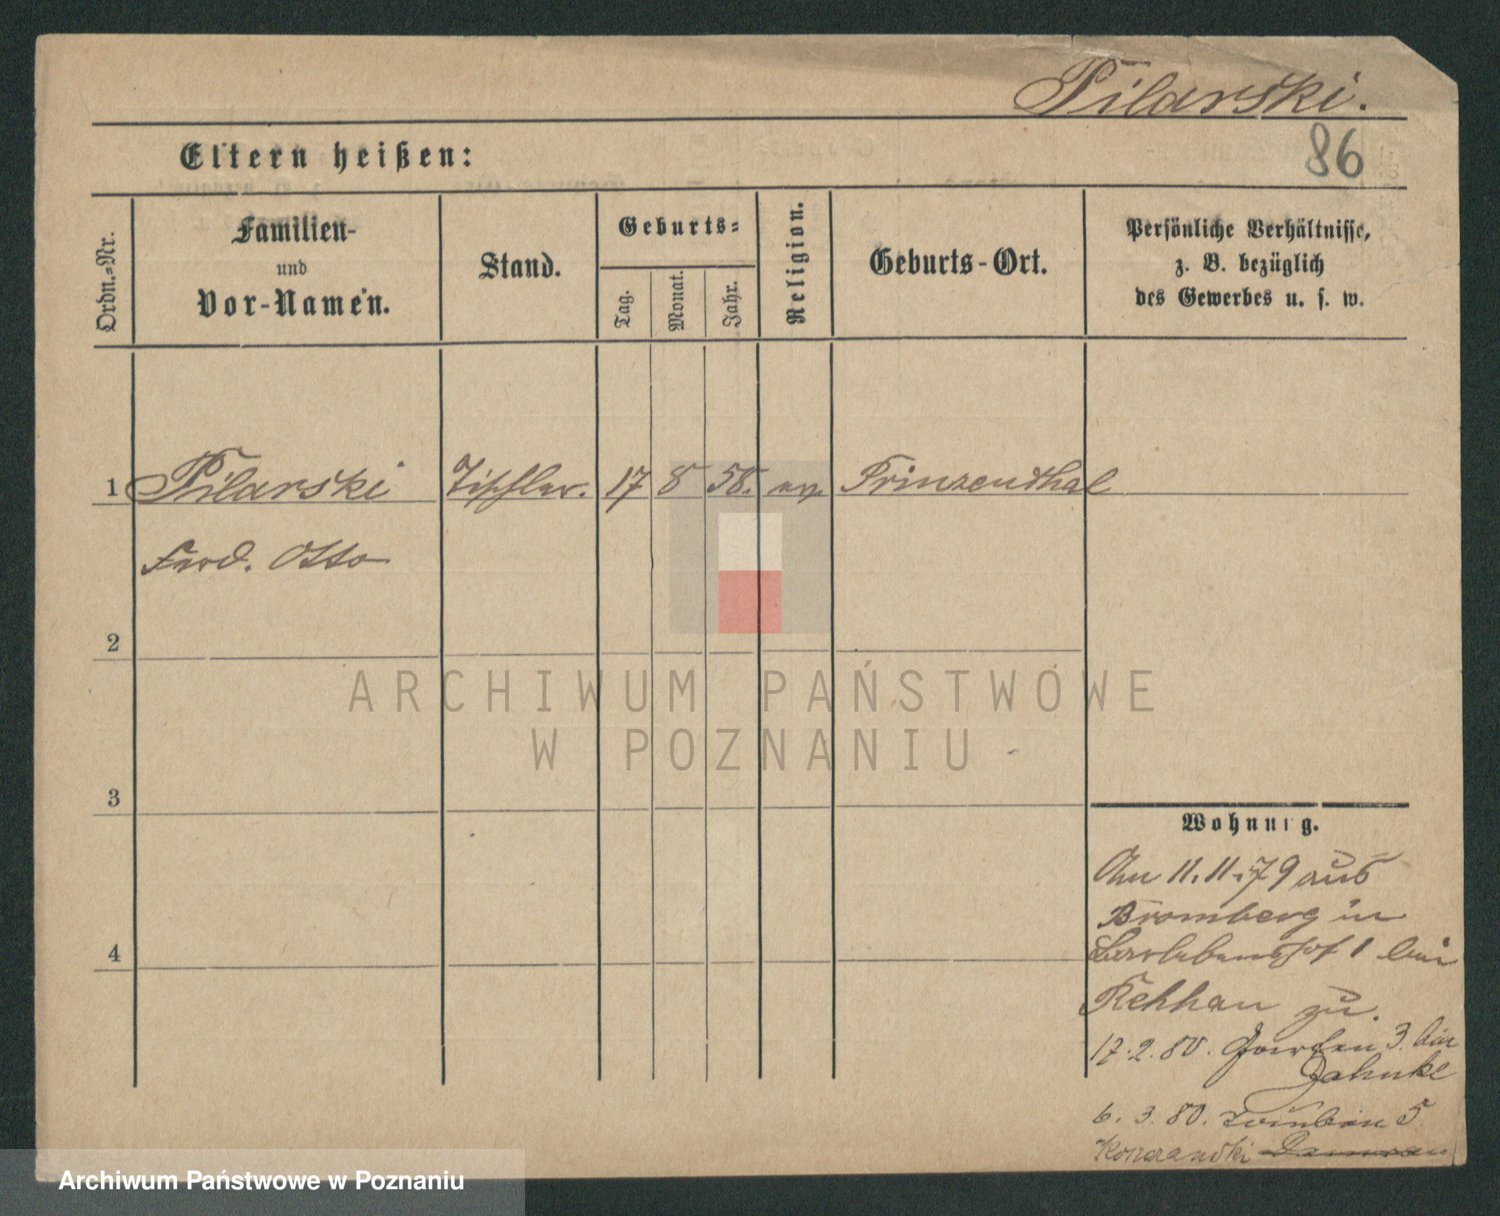 Pilarski.
Eltern heißen:
86
Ordn.=Nr.
Familien-
und
Vor-Namen.
Stand.
Geburts=
Tag.
Monat.
Jahr.
Religion.
Geburts-Ort.
Persönliche Verhältnisse,
z. B. bezüglich
des Gewerbes u. s. w.
1 Pilarski Tischler. 17 8 58. ev. Prinzenthal
Ferd. Otto
2
3
4
Wohnung.
Am 11.11.79 aus
Bromberg in
1 bei
zu.
17.2.80. 3. bei
Jahnke
6.3.80. 5
ARCHIWUM PAŃSTWOWE
W POZNANIU
Archiwum Państwowe w Poznaniu